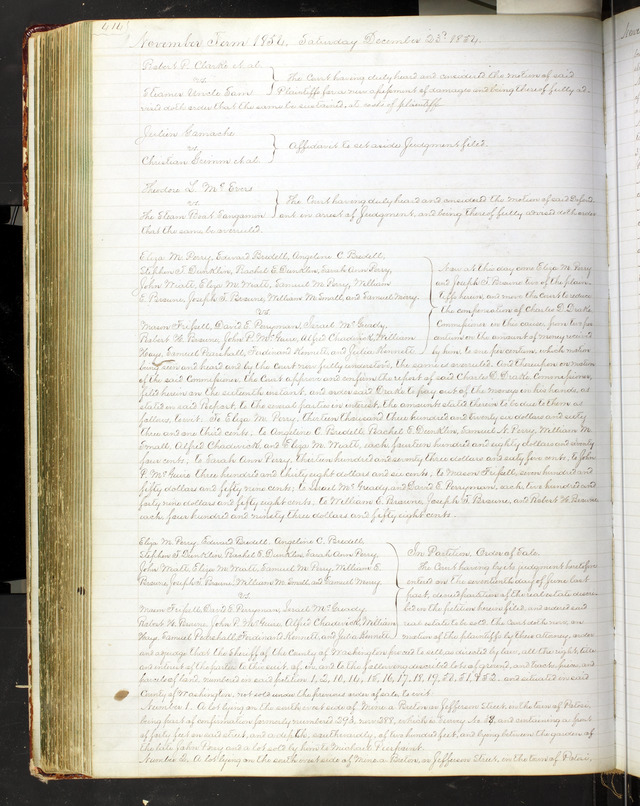 November Term 1854. Saturday December 23d 1854.
Robert P. Clarke et al
vs.
Eleanor Uncle Sam
The Court having duly heard and considered the motion of said
Plaintiffs for a new assessment of damages and being thereof fully ad-
vised doth order that the same be sustained, at costs of plaintiff.
Julien Gamache
vs
Christian et al
Affidavit to set aside Judgment filed.
Theodore L. McEvers
vs.
The Steam Boat Sangamon
The Court having duly heard and considered the motion of said Defend-
ant in arrest of Judgment, and being thereof fully advised doth order
that the same be overruled.
Eliza M. Perry, Edward Bredell, Angeline C. Bredell,
Stephen F. Dunklin, Rachel E. Dunklin, Sarah Ann Perry,
John Matte, Eliza M. Matte, Samuel M. Perry, William
E. Browne, Joseph T. Browne, William M. Small and Samuel Merry
vs
Mason Frissell, David E. Perryman, Israel McGready,
Robert W. Browne, John P. McGuire, Alfred Chadwick, William
Hays, Samuel Parshall, Ferdinand Kennett, and Julia Kennett
Now at this day come Eliza M. Perry
and Joseph T. Browne two of the plain-
tiffs herein, and move the Court to reduce
the compensation of Charles D. Drake
Commissioner in this cause, from two per
centum on the amount of money received
by him, to one per centum, which motion
being seen and heard and by the Court now fully understood, the same is overruled. And thereupon on motion
of the said Commissioner, the Court approve and confirm the report of said Charles D. Drake Commissioner,
filed herein on the sixteenth instant, and order said Drake to pay out of the money in his hands, as
stated in said Report, to the several parties in interest, the amounts stated therein to be due them as
follows, to wit: To Eliza M. Perry, thirteen thousand three hundred and twenty six dollars and sixty
three and one third cents, to Angeline C. Bredell, Rachel E. Dunklin, Samuel N. Perry, William M.
Small, Alfred Chadwick and Eliza M. Matte, each, fourteen hundred and eighty dollars and seventy
four cents, to Sarah Ann Perry, thirteen hundred and seventy three dollars and sixty four cents, to John
P. McGuire three hundred and thirty eight dollars and six cents, to Mason Frissell seven hundred and
fifty dollars and fifty nine cents, to Israel McGready and David E. Perryman, each, two hundred and
forty nine dollars and fifty eight cents, to William E. Browne, Joseph T. Browne, and Robert W. Browne
each, four hundred and ninety three dollars and fifty eight cents.
Eliza M. Perry, Edward Bredell, Angeline C. Bredell
Stephen F. Dunklin, Rachel E. Dunklin, Sarah Ann Perry
John Matte, Eliza M. Matte, Samuel M. Perry, William E.
Browne, Joseph T. Browne, William M. Small and Samuel Merry
vs
Mason Frissell, David E. Perryman, Israel McGready
Robert W. Browne, John P. McGuire, Alfred Chadwick, William
Hays, Samuel Parshall, Ferdinand Kennett, and Julia Kennett
In Partition, Order of Sale.
The Court having by its judgment heretofore
entered on the seventeenth day of June last
past, denied partition of the real estate descri-
bed in the petition herein filed, and ordered said
real estate to be sold, the Court doth now, on
motion of the plaintiffs by their attorney, order
and adjudge that the Sheriff of the County of Washington proceed to sell as directed by law, all the right, title
and interest of the parties to this suit, of, in, and to the following described lots of ground, and tracts, pieces, and
parcels of land, numbered in said petition 1, 2, 10, 14, 15, 16, 17, 18, 19, 50, 51, & 52, and situated in said
County of Washington, not sold under the previous order of sale, to wit:
Number 1. A lot lying on the south west side of Mine a Breton or Jefferson Street, in the town of Potosi,
being part of confirmation formerly numbered 293, now 288, which is Survey No. 19, and containing a front
of forty feet on said street, and a depth, southwardly, of two hundred feet, and lying between the garden of
the late John Perry and a lot sold by him to Michael Pierpoint.
Number 2. A lot lying on the south west side of Mine a Breton, or Jefferson Street, in the town of Potosi,